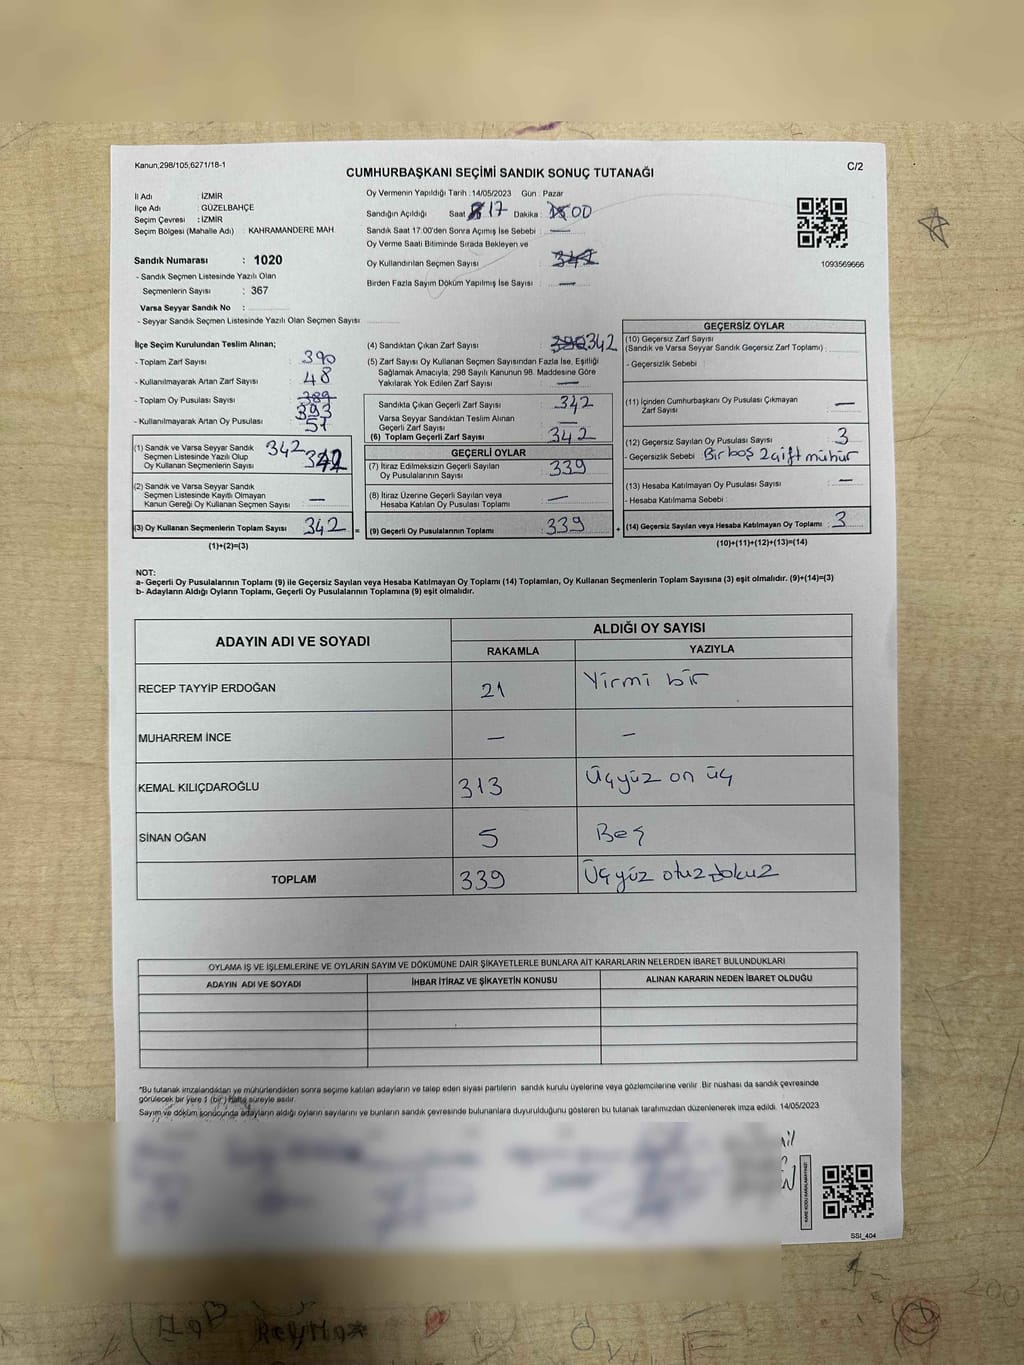 Kanun,298/105,6271/18-1
CUMHURBAŞKANI SEÇİMİ SANDIK SONUÇ TUTANAĞI
C/2
İl Adı : İZMİR
İlçe Adı : GÜZELBAHÇE
Seçim Çevresi : İZMİR
Seçim Bölgesi (Mahalle Adı) : KAHRAMANDERE MAH
Sandık Numarası : 1020
- Sandık Seçmen Listesinde Yazılı Olan
Seçmenlerin Sayısı : 367
Varsa Seyyar Sandık No :
- Seyyar Sandık Seçmen Listesinde Yazılı Olan Seçmen Sayısı
Oy Vermenin Yapıldığı Tarih : 14/05/2023 Gün : Pazar
Sandığın Açıldığı Saat 17 Dakika : 00
Sandık Saat 17.00'den Sonra Açılmış İse Sebebi : —
Oy Verme Saati Bitiminde Sırada Bekleyen ve
Oy Kullandırılan Seçmen Sayısı :
Birden Fazla Sayım Döküm Yapılmış İse Sayısı : —
1093569666
İlçe Seçim Kurulundan Teslim Alınan;
- Toplam Zarf Sayısı : 390
- Kullanılmayarak Artan Zarf Sayısı : 48
- Toplam Oy Pusulası Sayısı : 389 393
- Kullanılmayarak Artan Oy Pusulası : 51
(1) Sandık ve Varsa Seyyar Sandık
Seçmen Listesinde Yazılı Olup
Oy Kullanan Seçmenlerin Sayısı 342 342
(2) Sandık ve Varsa Seyyar Sandık
Seçmen Listesinde Kayıtlı Olmayan
Kanun Gereği Oy Kullanan Seçmen Sayısı —
(3) Oy Kullanan Seçmenlerin Toplam Sayısı 342
(1)+(2)=(3)
(4) Sandıktan Çıkan Zarf Sayısı : 390 342
(5) Zarf Sayısı Oy Kullanan Seçmen Sayısından Fazla İse, Eşitliği
Sağlamak Amacıyla, 298 Sayılı Kanunun 98. Maddesine Göre
Yakılarak Yok Edilen Zarf Sayısı : —
Sandıkta Çıkan Geçerli Zarf Sayısı : 342
Varsa Seyyar Sandıktan Teslim Alınan
Geçerli Zarf Sayısı : —
(6) Toplam Geçerli Zarf Sayısı : 342
GEÇERLİ OYLAR
(7) İtiraz Edilmeksizin Geçerli Sayılan
Oy Pusulalarının Sayısı : 339
(8) İtiraz Üzerine Geçerli Sayılan veya
Hesaba Katılan Oy Pusulası Toplamı : —
= (9) Geçerli Oy Pusulalarının Toplamı : 339
GEÇERSİZ OYLAR
(10) Geçersiz Zarf Sayısı
(Sandık ve Varsa Seyyar Sandık Geçersiz Zarf Toplamı) :
- Geçersizlik Sebebi :
(11) İçinden Cumhurbaşkanı Oy Pusulası Çıkmayan
Zarf Sayısı : —
(12) Geçersiz Sayılan Oy Pusulası Sayısı : 3
- Geçersizlik Sebebi : Bir boş 2 çift mühür
(13) Hesaba Katılmayan Oy Pusulası Sayısı : —
- Hesaba Katılmama Sebebi :
+ (14) Geçersiz Sayılan veya Hesaba Katılmayan Oy Toplamı : 3
(10)+(11)+(12)+(13)=(14)
NOT:
a- Geçerli Oy Pusulalarının Toplamı (9) ile Geçersiz Sayılan veya Hesaba Katılmayan Oy Toplamı (14) Toplamları, Oy Kullanan Seçmenlerin Toplam Sayısına (3) eşit olmalıdır. (9)+(14)=(3)
b- Adayların Aldığı Oyların Toplamı, Geçerli Oy Pusulalarının Toplamına (9) eşit olmalıdır.
ADAYIN ADI VE SOYADI
ALDIĞI OY SAYISI
RAKAMLA YAZIYLA
RECEP TAYYİP ERDOĞAN 21 Yirmi bir
MUHARREM İNCE — —
KEMAL KILIÇDAROĞLU 313 Üçyüz on üç
SİNAN OĞAN 5 Beş
TOPLAM 339 Üçyüz otuzdokuz
OYLAMA İŞ VE İŞLEMLERİNE VE OYLARIN SAYIM VE DÖKÜMÜNE DAİR ŞİKAYETLERLE BUNLARA AİT KARARLARIN NELERDEN İBARET BULUNDUKLARI
ADAYIN ADI VE SOYADI İHBAR İTİRAZ VE ŞİKAYETİN KONUSU ALINAN KARARIN NEDEN İBARET OLDUĞU
*Bu tutanak imzalandıktan ve mühürlendikten sonra seçime katılan adayların ve talep eden siyasi partilerin sandık kurulu üyelerine veya gözlemcilerine verilir. Bir nüshası da sandık çevresinde
görülecek bir yere 1 (bir) hafta süreyle asılır.
Sayım ve döküm sonucunda adayların aldığı oyların sayılarını ve bunların sandık çevresinde bulunanlara duyurulduğunu gösteren bu tutanak tarafımızdan düzenlenerek imza edildi. 14/05/2023
SSI_404